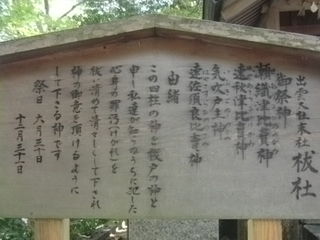 出雲大社末社 祓社
御祭神
瀬織津比賣神
速秋津比賣神
気吹戸主神
速佐須良比賣神
由緒
この四柱の神を祓戸の神と
申し私達が知らぬうちに犯した
心身の罪汚(けがれ)を
祓い清めて清々しくして下され
神の御恵を頂けるように
して下さる神です
祭日 六月三十日
十二月三十一日